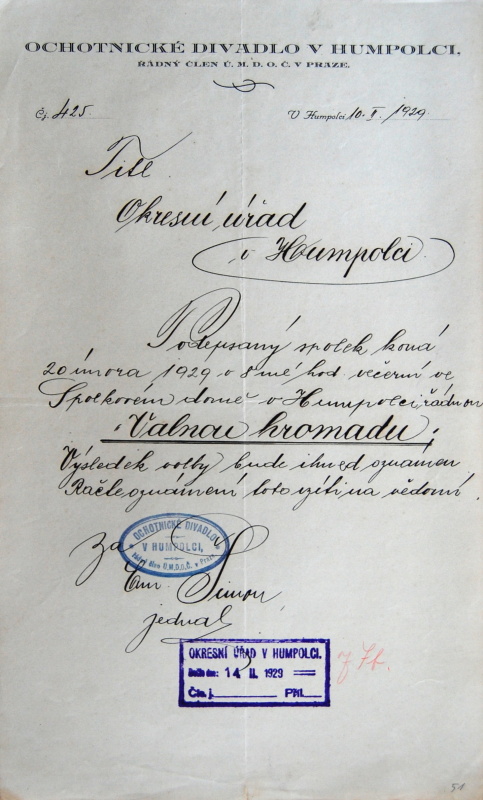 OCHOTNICKÉ DIVADLO V HUMPOLCI,
ŘÁDNÝ ČLEN Ú. M. D. O. Č. V PRAZE.
Čj. 425. V Humpolci 10. I. 1929
Titl.
Okresní úřad
v Humpolci.
Podepsaný spolek koná
20 února 1929 v 8 mé hod večerní ve
Spolkovém domě v Humpolci, řádnou
"Valnou hromadu".
Výsledek volby bude ihned oznámen
Račte oznámení toto vzíti na vědomí.
OCHOTNICKÉ DIVADLO
V HUMPOLCI,
řádný člen Ú.M.D.O.Č. v Praze.
Za
Em. Šimon,
jednatel
OKRESNÍ ÚŘAD V HUMPOLCI.
Došlo dne: 14 II. 1929
Čís. j. Příl.
51